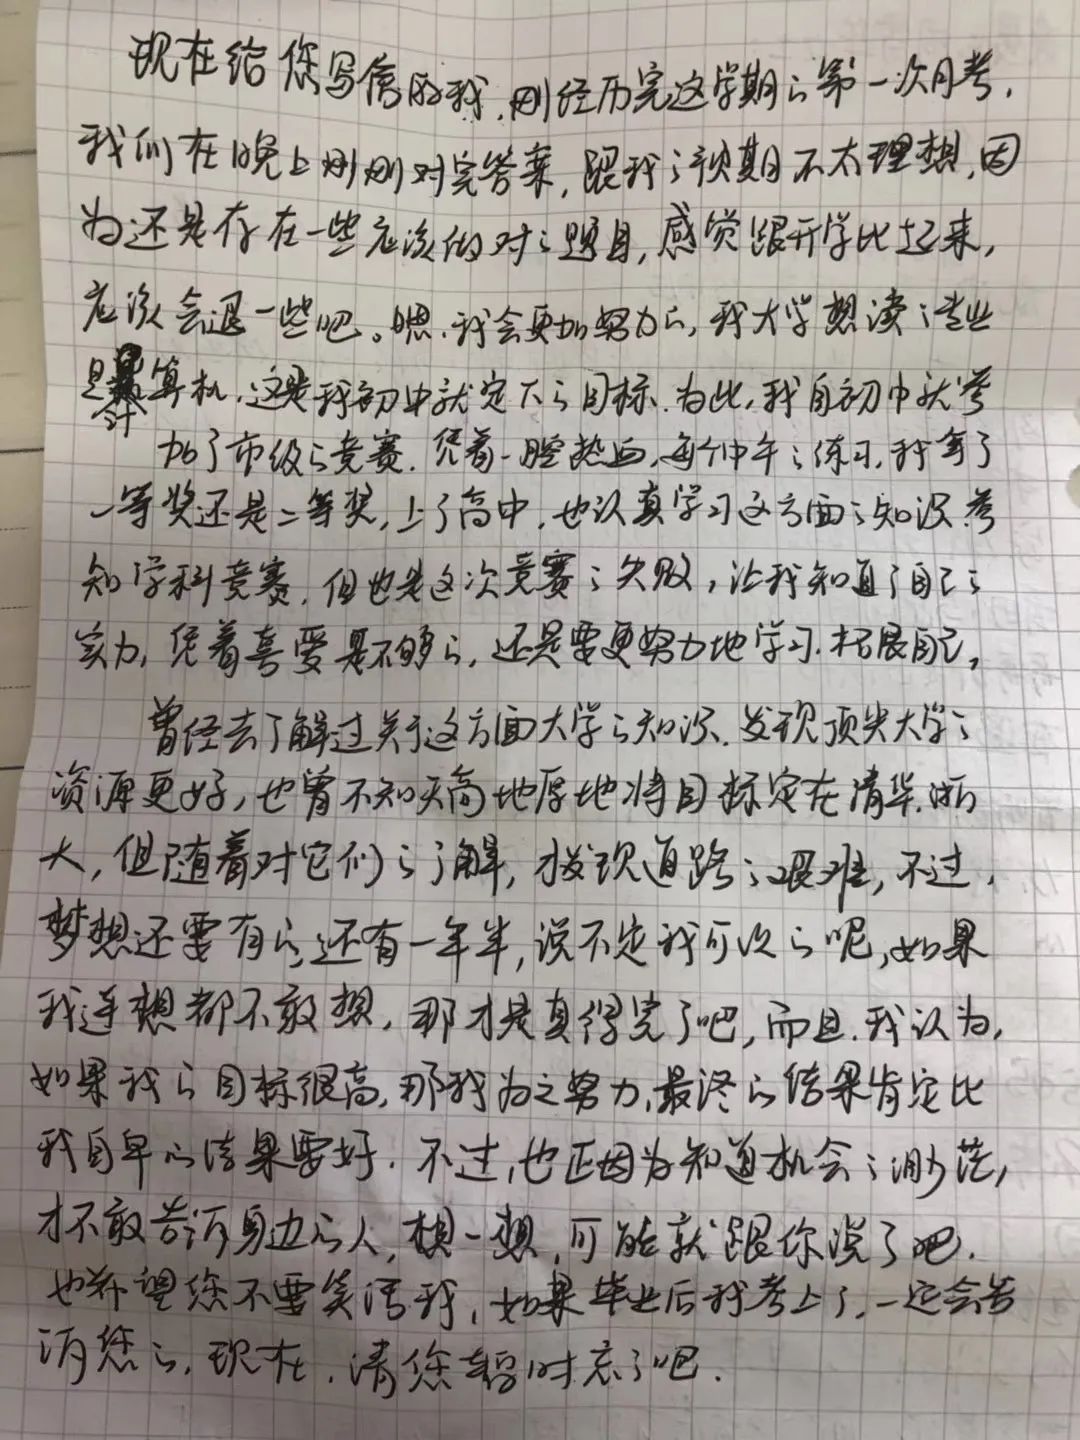 现在给您写信的我,刚经历完这学期的第一次月考,
我们在晚上刚刚对完答案,跟我的预期不太理想,因
为还是存在一些应该做对的题目,感觉跟开学比起来,
应该会退一些吧。嗯,我会更加努力的,我大学想读的专业
是计算机,这是我初中就定下的目标.为此,我自初中就参
加了市级的竞赛.凭着一腔热血,每个中午的练习,我拿了
一等奖还是二等奖,上了高中,也认真学习这方面的知识.参
加学科竞赛.但也是这次竞赛的失败,让我知道了自己的
实力,凭着喜爱是不够的,还是要更努力地学习.拓展自己,
曾经去了解过关于这方面大学的知识.发现顶尖大学的
资源更好,也曾不知天高地厚地将目标定在清华.浙
大,但随着对它们的了解,才发现道路的艰难,不过,
梦想还要有的,还有一年半,说不定我可以的呢,如果
我连想都不敢想,那才是真得完了吧,而且.我认为,
如果我的目标很高,那我为之努力,最终的结果肯定比
我自卑的结果要好.不过,也正因为知道机会的渺茫,
才不敢告诉身边的人,想一想,可能就跟你说了吧.
也希望您不要笑话我,如果毕业后我考上了,一定会告
诉您的,现在,请您暂时忘了吧.